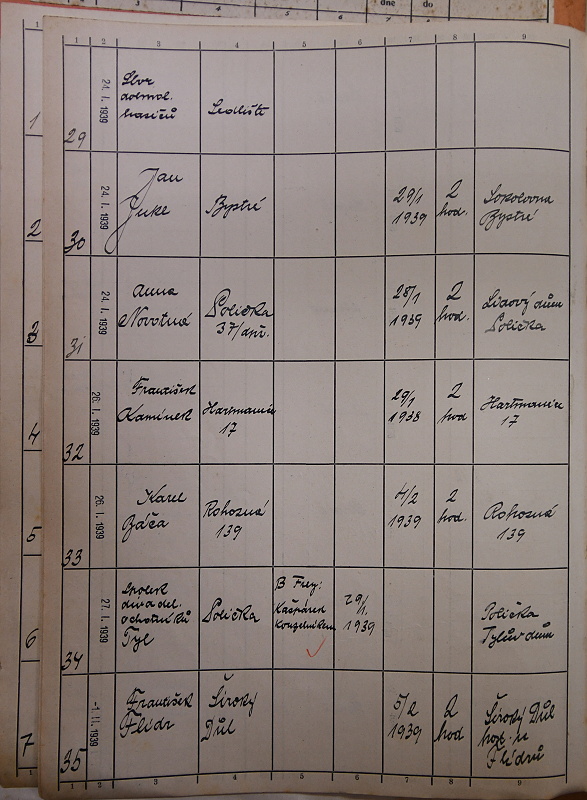 dne do
4 5 6 7
1 2 3 4 5 6 7 8 9
29 24. I. 1939 Sbor
dobrovol.
hasičů Sedliště
30 24. I. 1939 Jan
Juke Bystré 29/1
1939 2
hod. Sokolovna
Bystré
31 24. I. 1939 Anna
Novotná Polička
37/dpř. 28/1
1939 2
hod. Lidový dům
Polička
32 26. I. 1939 František
Kamínek Hartmanice
17 29/1
1938 2
hod Hartmanice
17
33 26. I. 1939 Karel
Báča Rohozná
139 4/2
1939 2
hod. Rohozná
139
34 27. I. 1939 Spolek
divadel.
ochotníků
Tyl Polička B Frey:
Kašpárek
Kouzelníkem 29/1.
1939 Polička
Tylův dům
35 -1. II. 1939 František
Flídr Široký
Důl 5/2
1939 2
hod Široký Důl
host. u
Flídrů
1 2 3 4 5 6 7
1 2 3 4 5 6 7 8 9